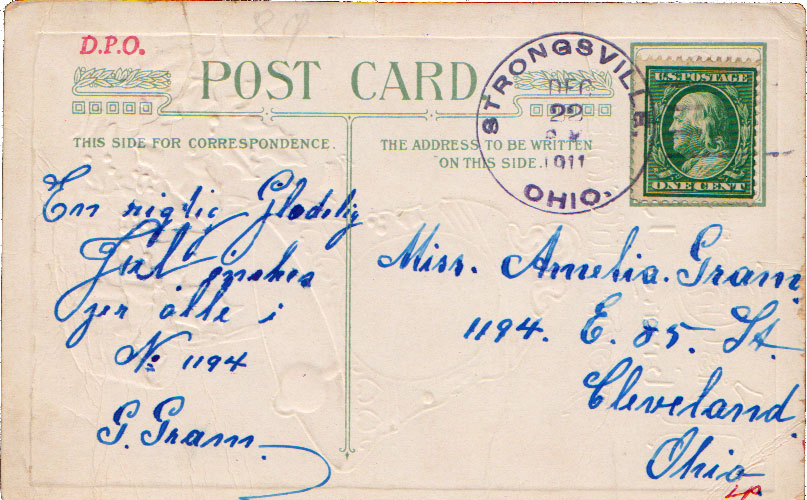 D.P.O.
POST CARD
STRONGSVILLE,
DEC
22
1911
OHIO.
U.S. POSTAGE
ONE CENT
THIS SIDE FOR CORRESPONDENCE.
THE ADDRESS TO BE WRITTEN
ON THIS SIDE.
En rigtig Glædelig
Jul ønskes
jer alle i
No 1194
G. Gram.
Miss. Amelia. Gram
1194. E. 85. St.
Cleveland.
Ohio